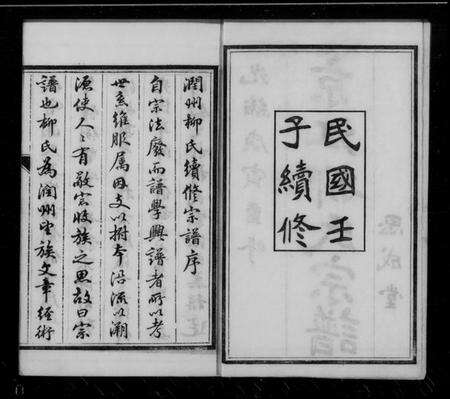 民國壬
子續修
潤州柳氏續修宗譜序
自宗法廢而譜學興譜者所以考
世系維服属因支以樹本沿流以溯
源使人〻有敬宗收族之思故曰宗
譜也柳氏為潤州望族文章經術